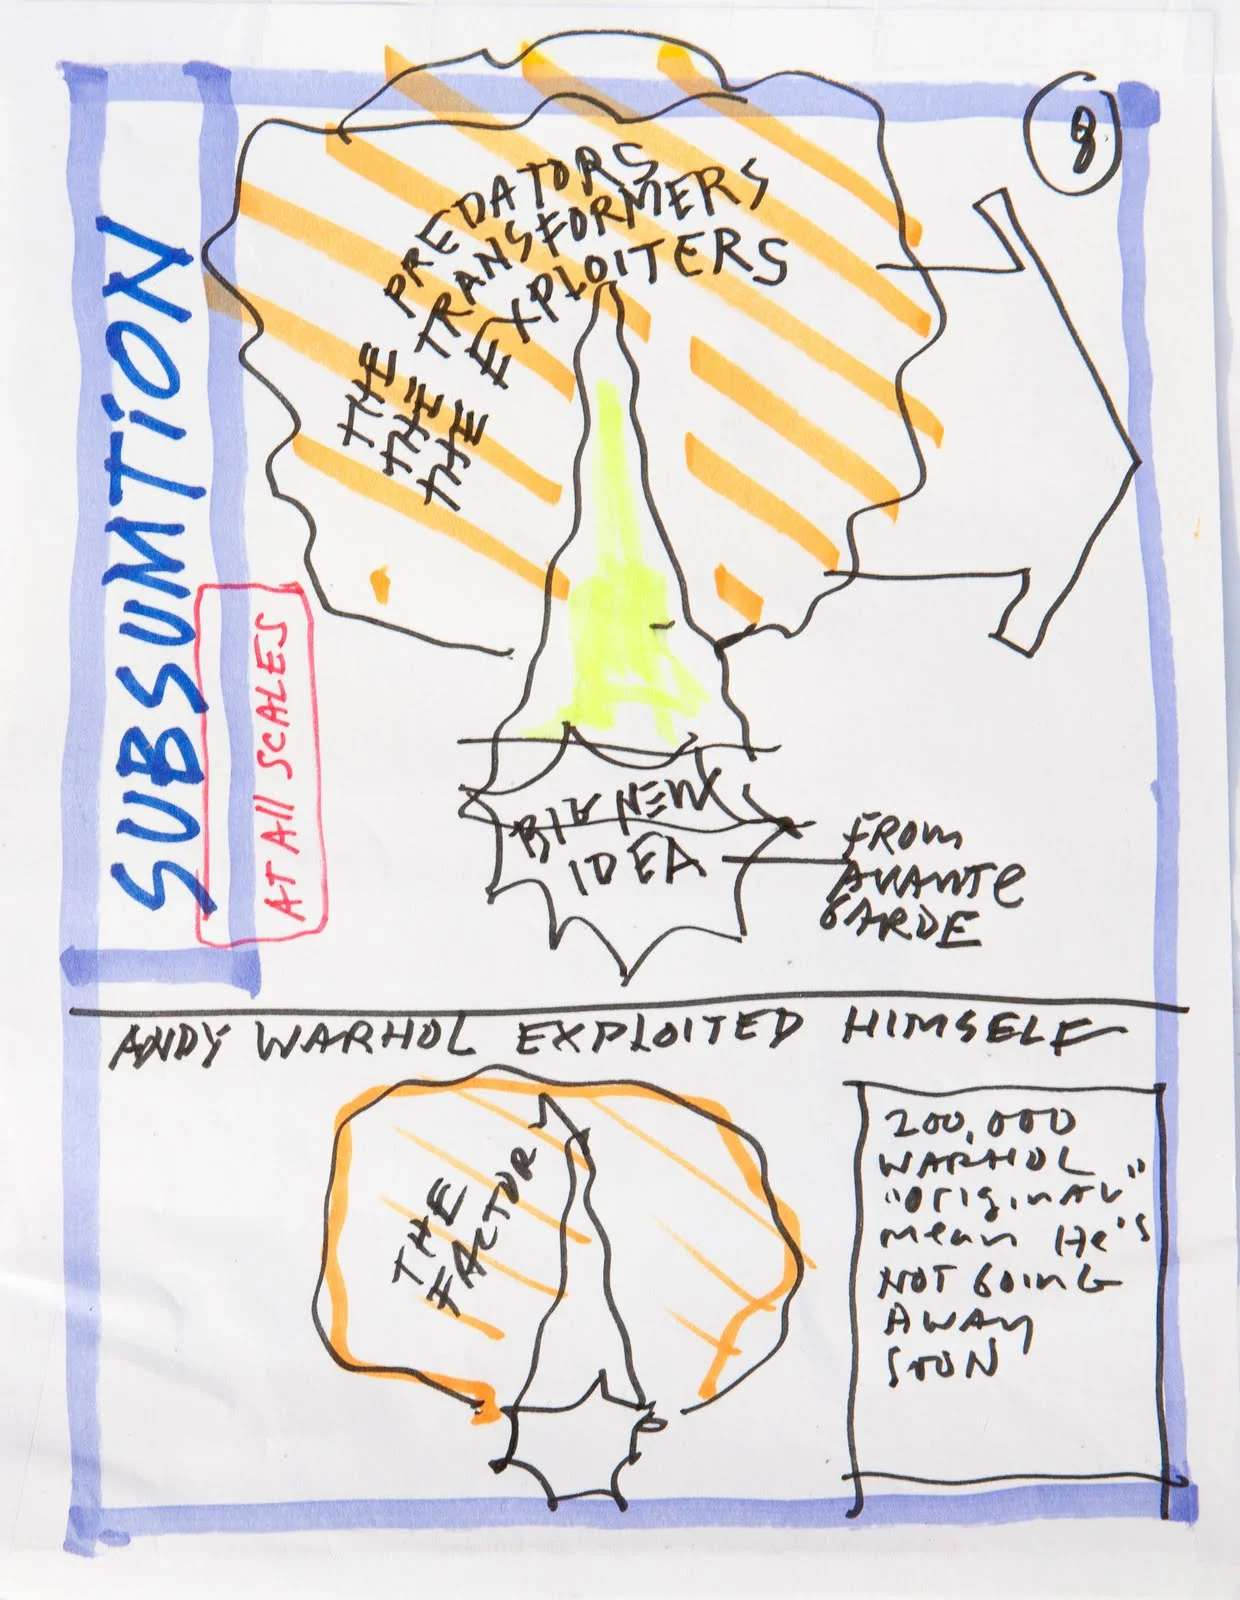 8
SUBSUMTION
AT All SCALES
THE PREDATORS
THE TRANSFORMERS
THE EXPLOITERS
BIG NEW
IDEA
FROM
AVANTE
GARDE
ANDY WARHOL EXPLOITED HIMSELF
THE
FACTORY
200,000
WARHOL
"OriginAL"
mean He's
NOT GOING
AWAY
SOON